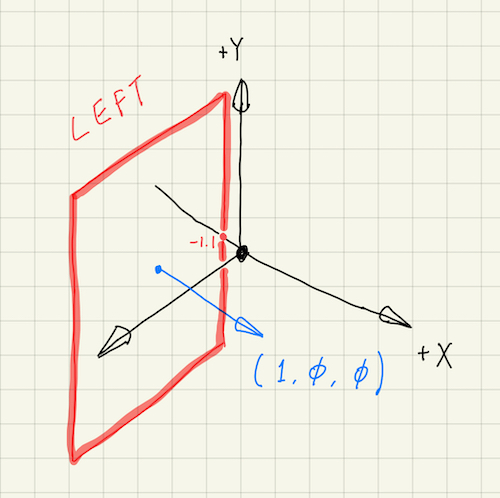 +Y
LEFT
-1.1
+X
(1, ϕ, ϕ)